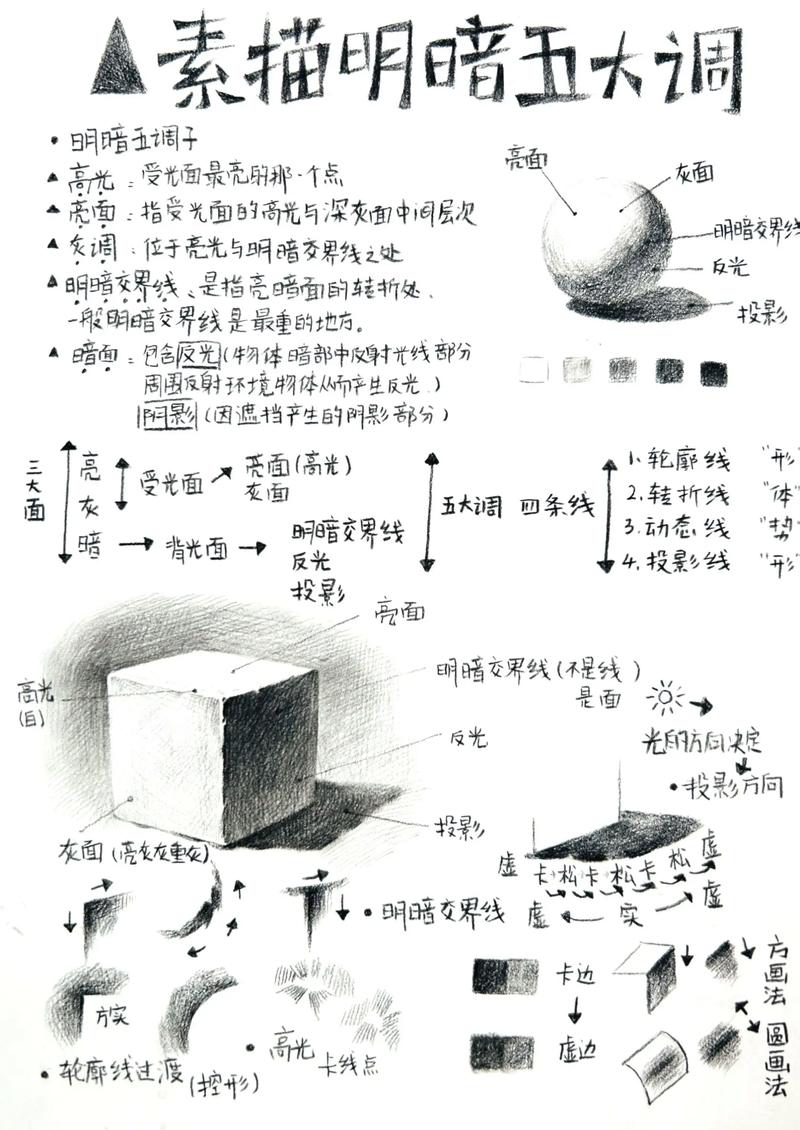 素描明暗五大调
明暗五调子
高光：受光面最亮的那一个点
亮面：指受光面的高光与深灰面中间层次
灰调：位于亮光与明暗交界线之处
明暗交界线、是指亮暗面的转折处、
一般明暗交界线是最重的地方。
暗面：包含反光(物体暗部中反射光线部分
周围反射环境物体从而产生反光.)
阴影(因遮挡产生的阴影部分)
亮面
灰面
明暗交界线
反光
投影
三大面
亮
灰
暗
受光面
亮面(高光)
灰面
背光面
明暗交界线
反光
投影
五大调 四条线
1.轮廓线 "形
2.转折线 "体"
3.动态线 "势
4.投影线 "形
亮面
高光
(白)
明暗交界线(不是线)
是面
反光
投影
灰面(亮灰灰重灰)
光的方向决定
投影方向
虚 卡松卡松卡松虚
虚 实 虚
明暗交界线
方实
轮廓线过渡(控形)
高光 卡线点
卡边
虚边
方画法
圆画法